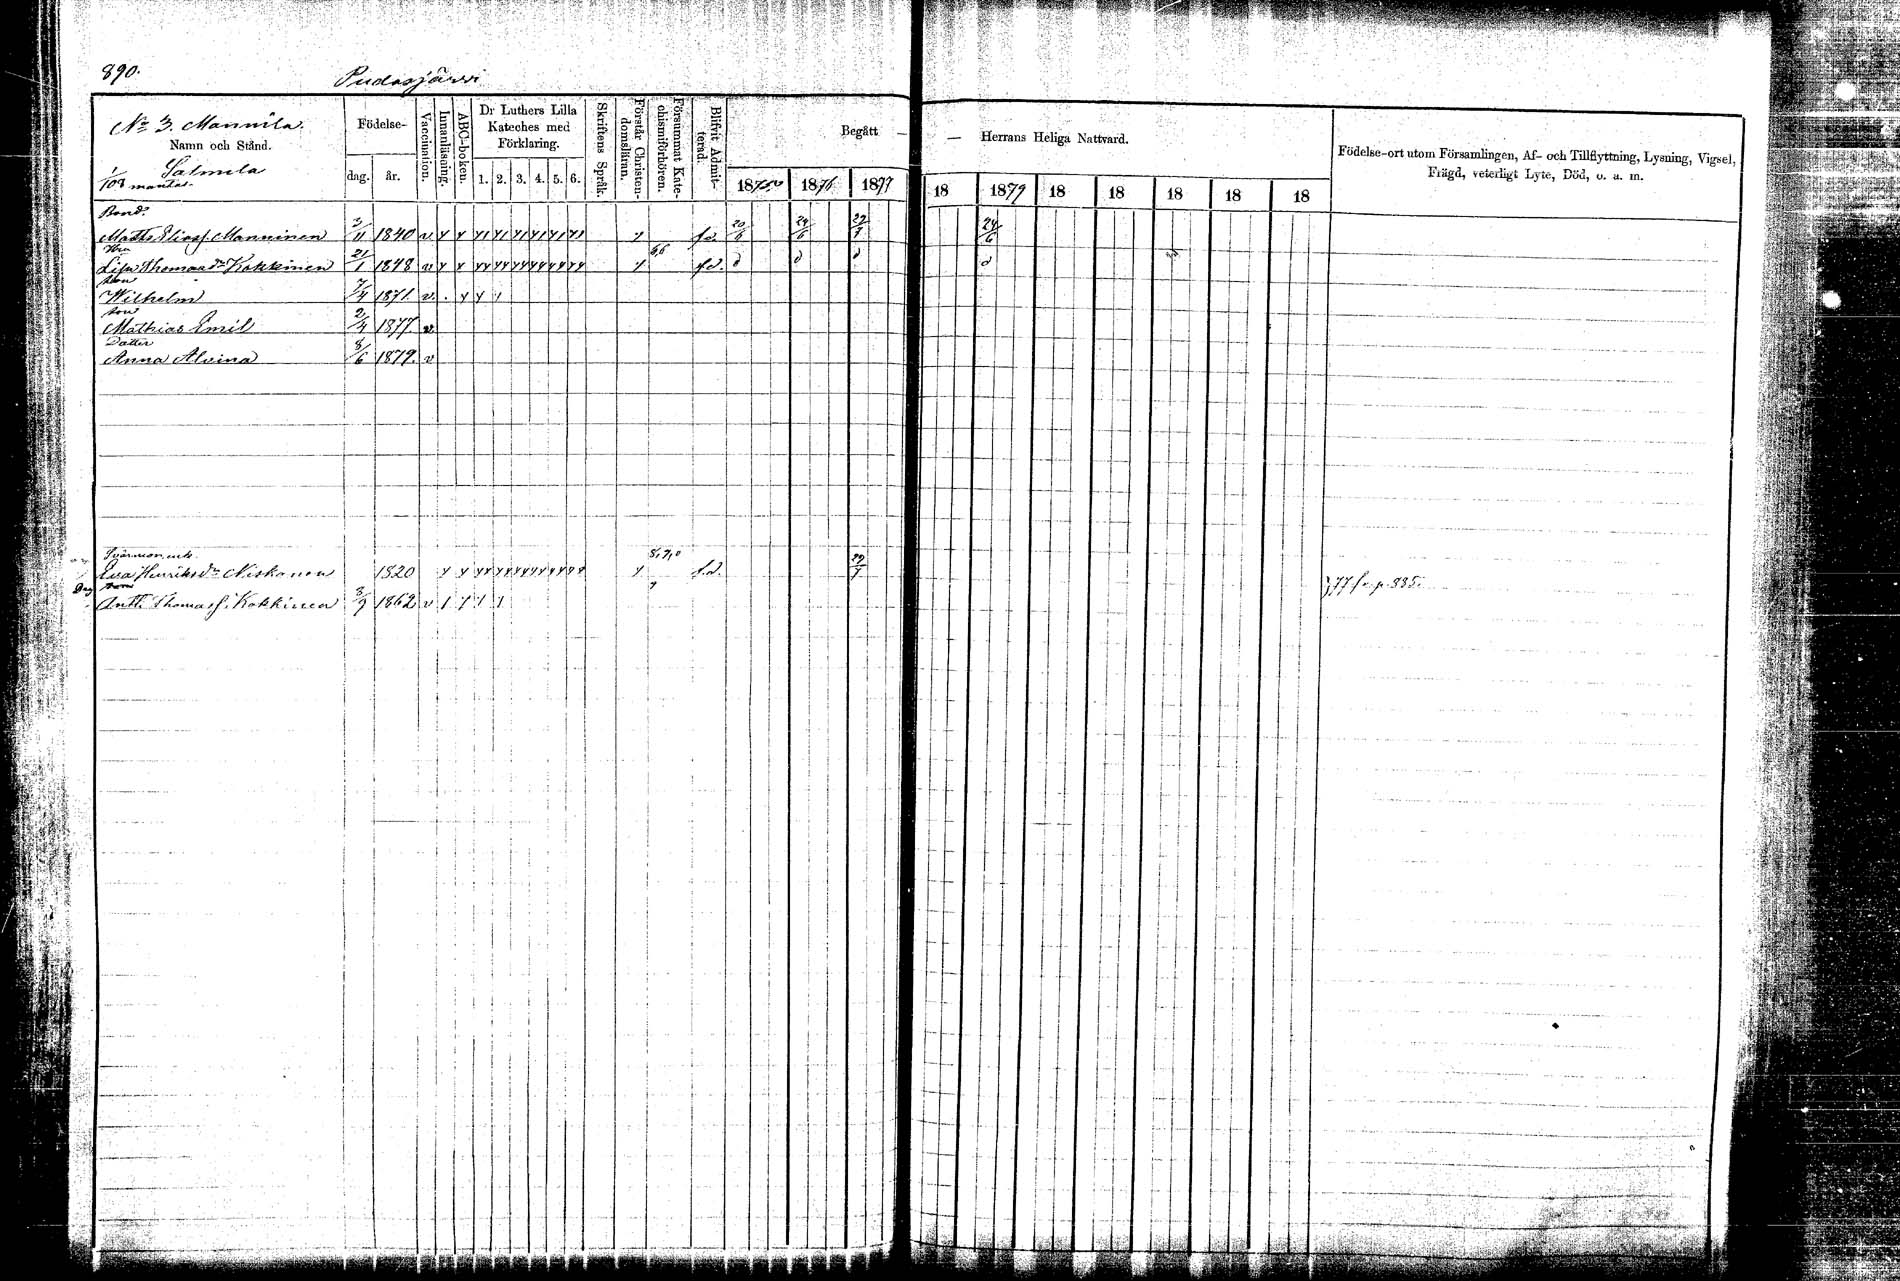 890.
Pudasjärvi
No 3. Mannila.
Namn och Stånd.
Salmila
1/108 mantal.
Födelse-
dag. år.
Vaccination.
Innanläsning.
ABC-boken.
Dr Luthers Lilla Kateches med Förklaring.
1. 2. 3. 4. 5. 6.
Skriftens Språk.
Förstår Christendomsläran.
Försummat Katechismiförhören.
Blifvit Admitterad.
Begått — — Herrans Heliga Nattvard.
1875 1876 1877 18 1879 18 18 18 18 18
Födelse-ort utom Församlingen, Af- och Tillflyttning, Lysning, Vigsel,
Frägd, veterligt Lyte, Död, o. a. m.
Bond.
Matts Eliasf. Manninen 3/11 1840 v. f.d. 20/6 24/6 22/7 24/6
Hu
Lisa Thomasdr Kokkinen 21/1 1848 v 66 f.d.
son
Wilhelm 7/4 1871. v.
son
Mathias Emil 2/4 1877. v.
Datter
Anna Alvina 8/6 1879. v
Eva Henriksdr Niskanen 1820 f.d. 22/7
Antti Thomasf. Kokkinen 3/9 1862 v
77 fr. p. 885.